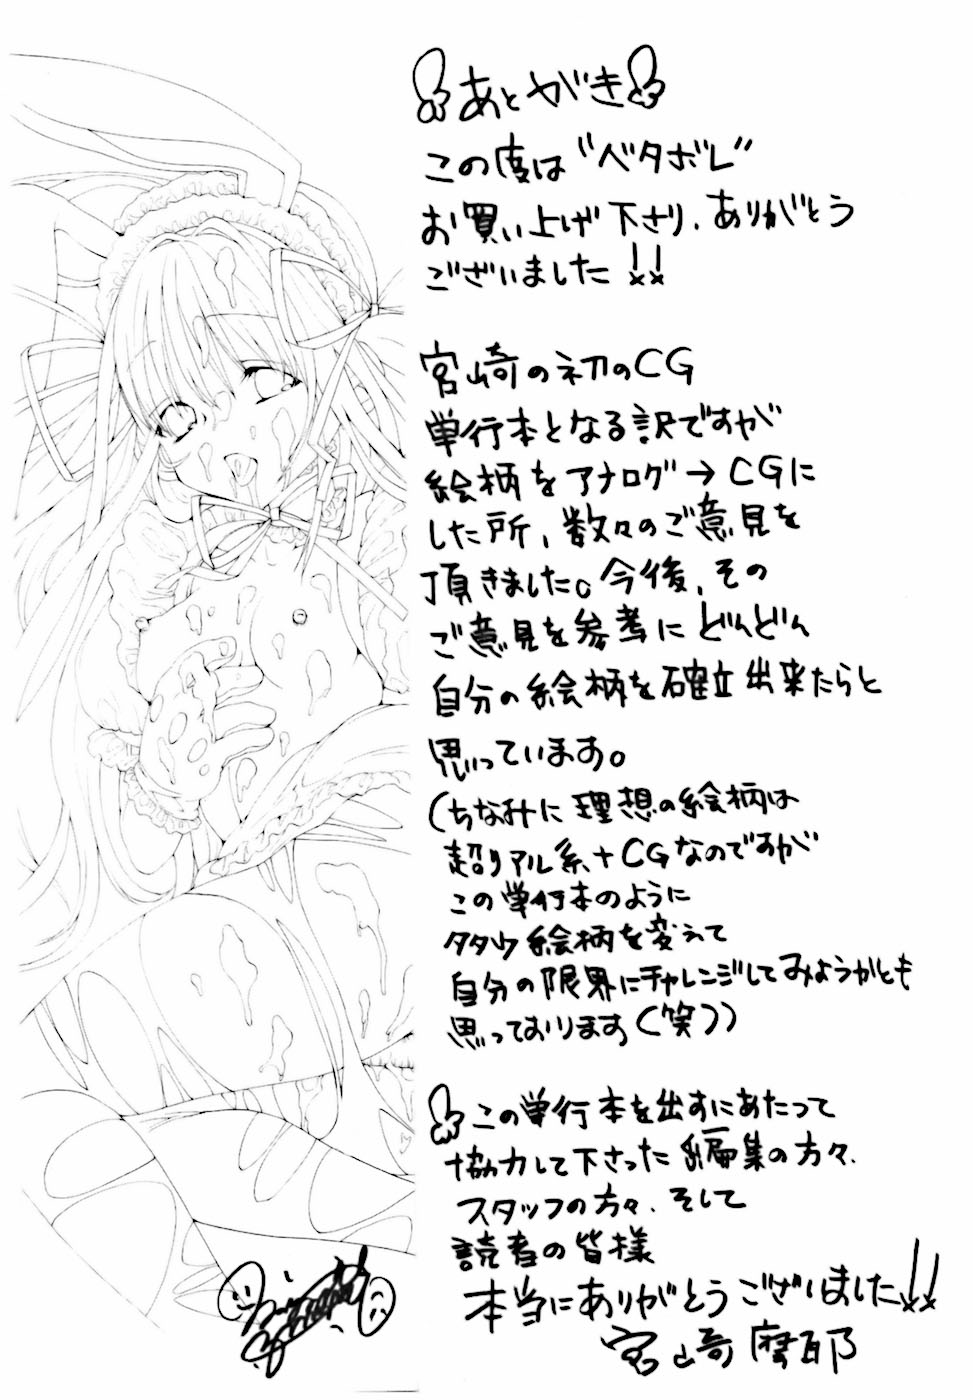 あとがき
この度は“ベタボレ”
お買い上げ下さり、ありがとう
ございました!!
宮崎の初のCG
単行本となる訳ですが
絵柄をアナログ→CGに
した所、数々のご意見を
頂きました。今後、その
ご意見を参考にどんどん
自分の絵柄を確立出来たらと
思っています。
(ちなみに理想の絵柄は
超リアル系+CGなのですが
この単行本のように
タタカウ絵柄を変えて
自分の限界にチャレンジしてみようかとも
思っております(笑))
この単行本を出すにあたって
協力して下さった編集の方々、
スタッフの方々、そして
読者の皆様
本当にありがとうございました!!
宮崎摩耶